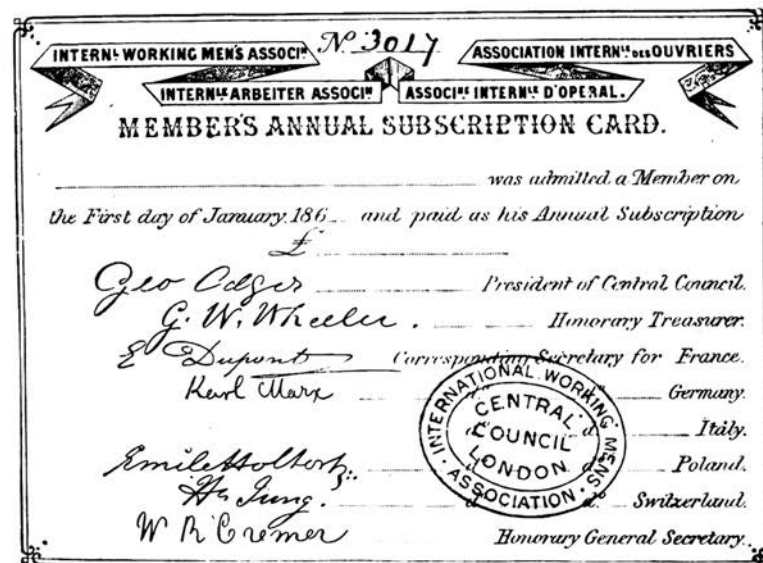 Nº 3017
INTERNL WORKING MEN'S ASSOCIN
ASSOCIATION INTERNLE DES OUVRIERS
INTERNLE ARBEITER ASSOCIN
ASSOCINE INTERNLE D'OPERAI.
MEMBER'S ANNUAL SUBSCRIPTION CARD.
was admitted a Member on
the First day of January 186 and paid as his Annual Subscription
£
Geo Odger President of Central Council.
G. W. Wheeler. Honorary Treasurer.
E Dupont Corresponding Secretary for France.
Karl Marx Germany.
d. Italy.
Emile Holtorp. Poland.
Hn Jung. d. Switzerland.
W R Cremer Honorary General Secretary.
INTERNATIONAL WORKING MENS ASSOCIATION
CENTRAL
COUNCIL
LONDON